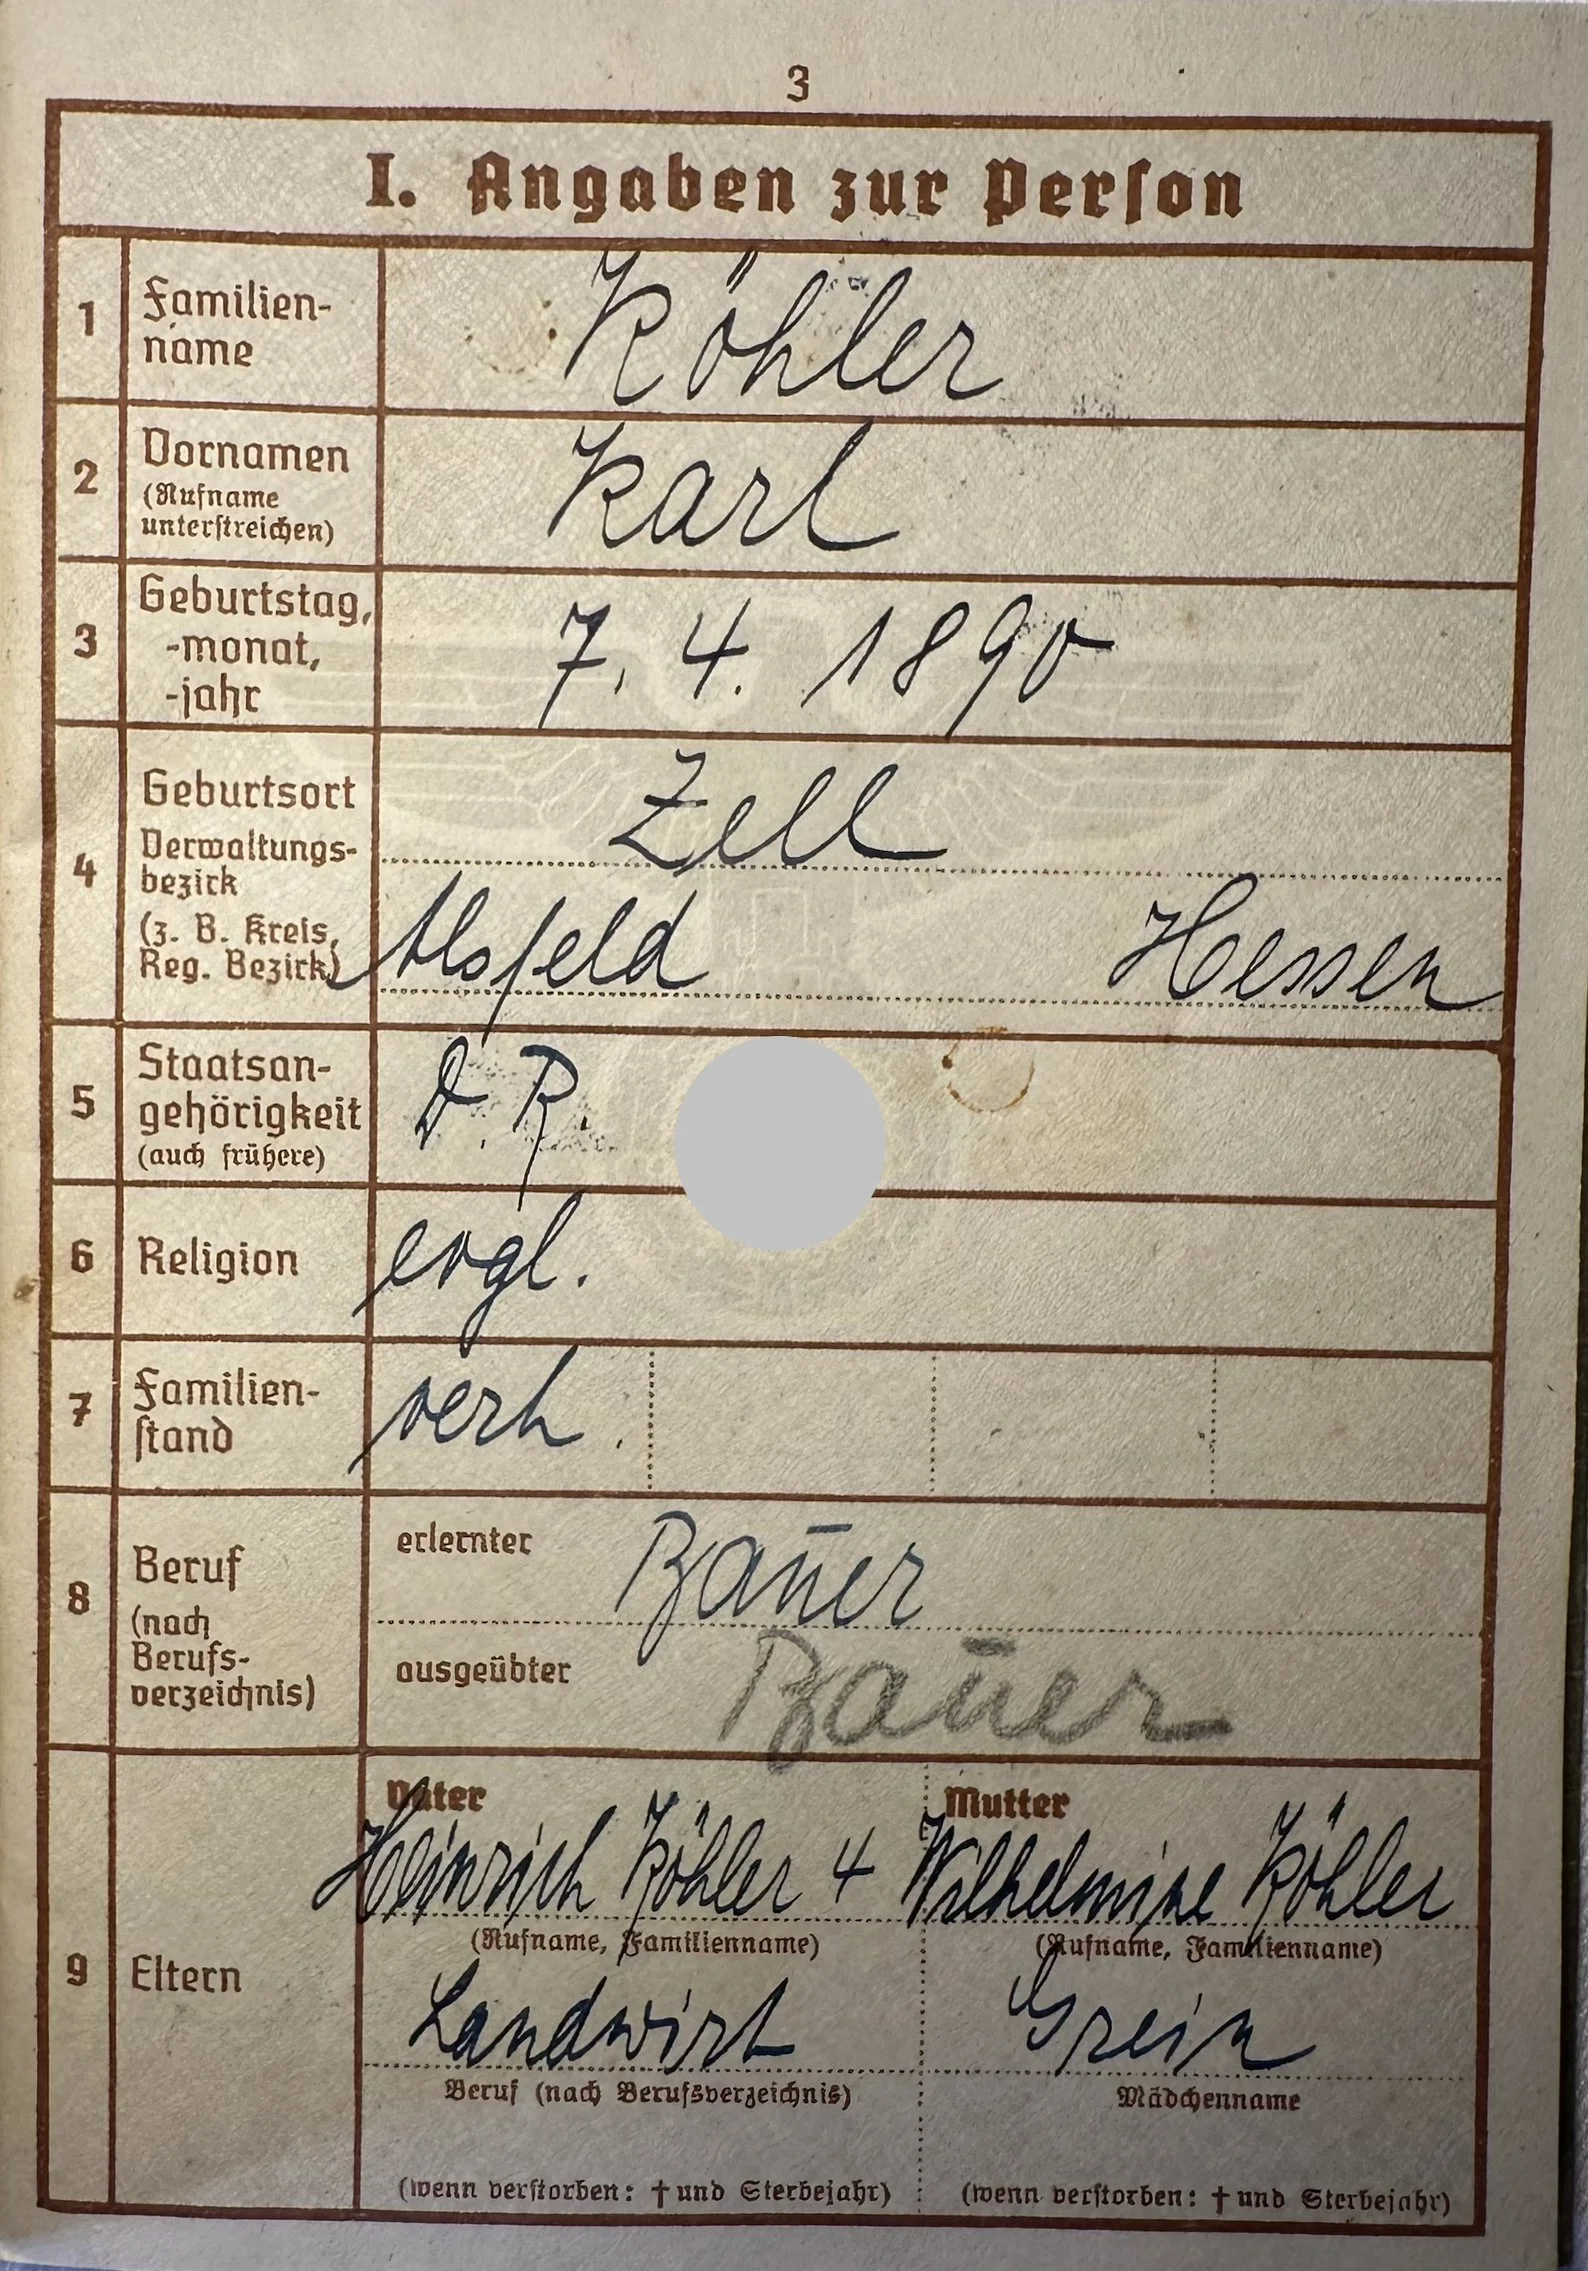 3
I. Angaben zur Person
1 Familien-
name
Köhler
2 Vornamen
(Rufname
unterstreichen)
Karl
3 Geburtstag,
-monat,
-jahr
7. 4. 1890
4 Geburtsort
Verwaltungs-
bezirk
(z. B. Kreis,
Reg. Bezirk)
Zell
Alsfeld Hessen
5 Staatsan-
gehörigkeit
(auch frühere)
D. R.
6 Religion
evgl.
7 Familien-
stand
verh.
8 Beruf
(nach
Berufs-
verzeichnis)
erlernter Bauer
ausgeübter Bauer
9 Eltern
Vater
Heinrich Köhler
(Rufname, Familienname)
Landwirt
Beruf (nach Berufsverzeichnis)
(wenn verstorben: † und Sterbejahr)
Mutter
Wilhelmine Köhler
(Rufname, Familienname)
Grein
Mädchenname
(wenn verstorben: † und Sterbejahr)